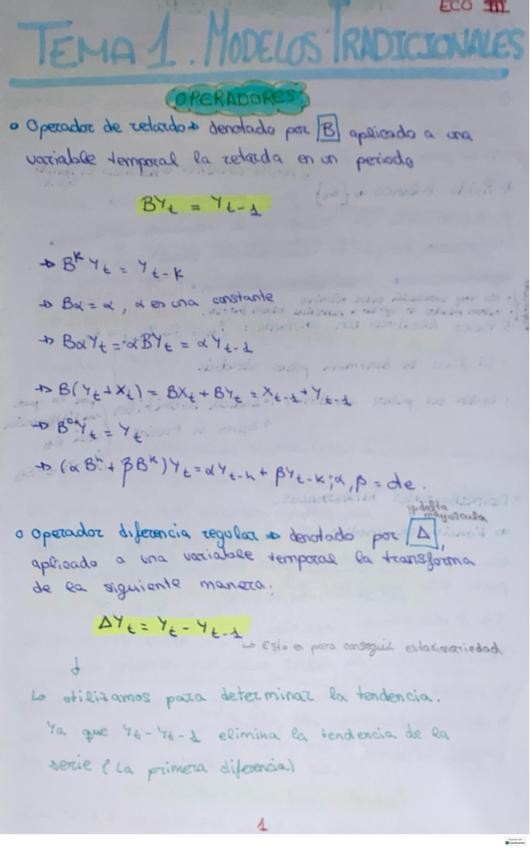 ECO III
TEMA 1. MODELOS TRADICIONALES
OPERADORES
Operador de retardo → denotado por B aplicado a una
variable temporal la retarda en un periodo
BY_t = Y_{t-1}
→ B^K Y_t = Y_{t-K}
→ Bα = α, α es una constante
→ BαY_t = αBY_t = αY_{t-1}
→ B(Y_t + X_t) = BX_t + BY_t = X_{t-1} + Y_{t-1}
→ B^0 Y_t = Y_t
→ (αB^h + βB^K)Y_t = αY_{t-h} + βY_{t-K}; α, β = cte.
delta
mayúscula
Operador diferencia regular → denotado por Δ,
aplicado a una variable temporal la transforma
de la siguiente manera:
ΔY_t = Y_t - Y_{t-1}
↳ Esto es para conseguir estacionariedad
↓
Lo utilizamos para determinar la tendencia.
Ya que Y_t - Y_{t-1} elimina la tendencia de la
serie (La primera diferencia)
1